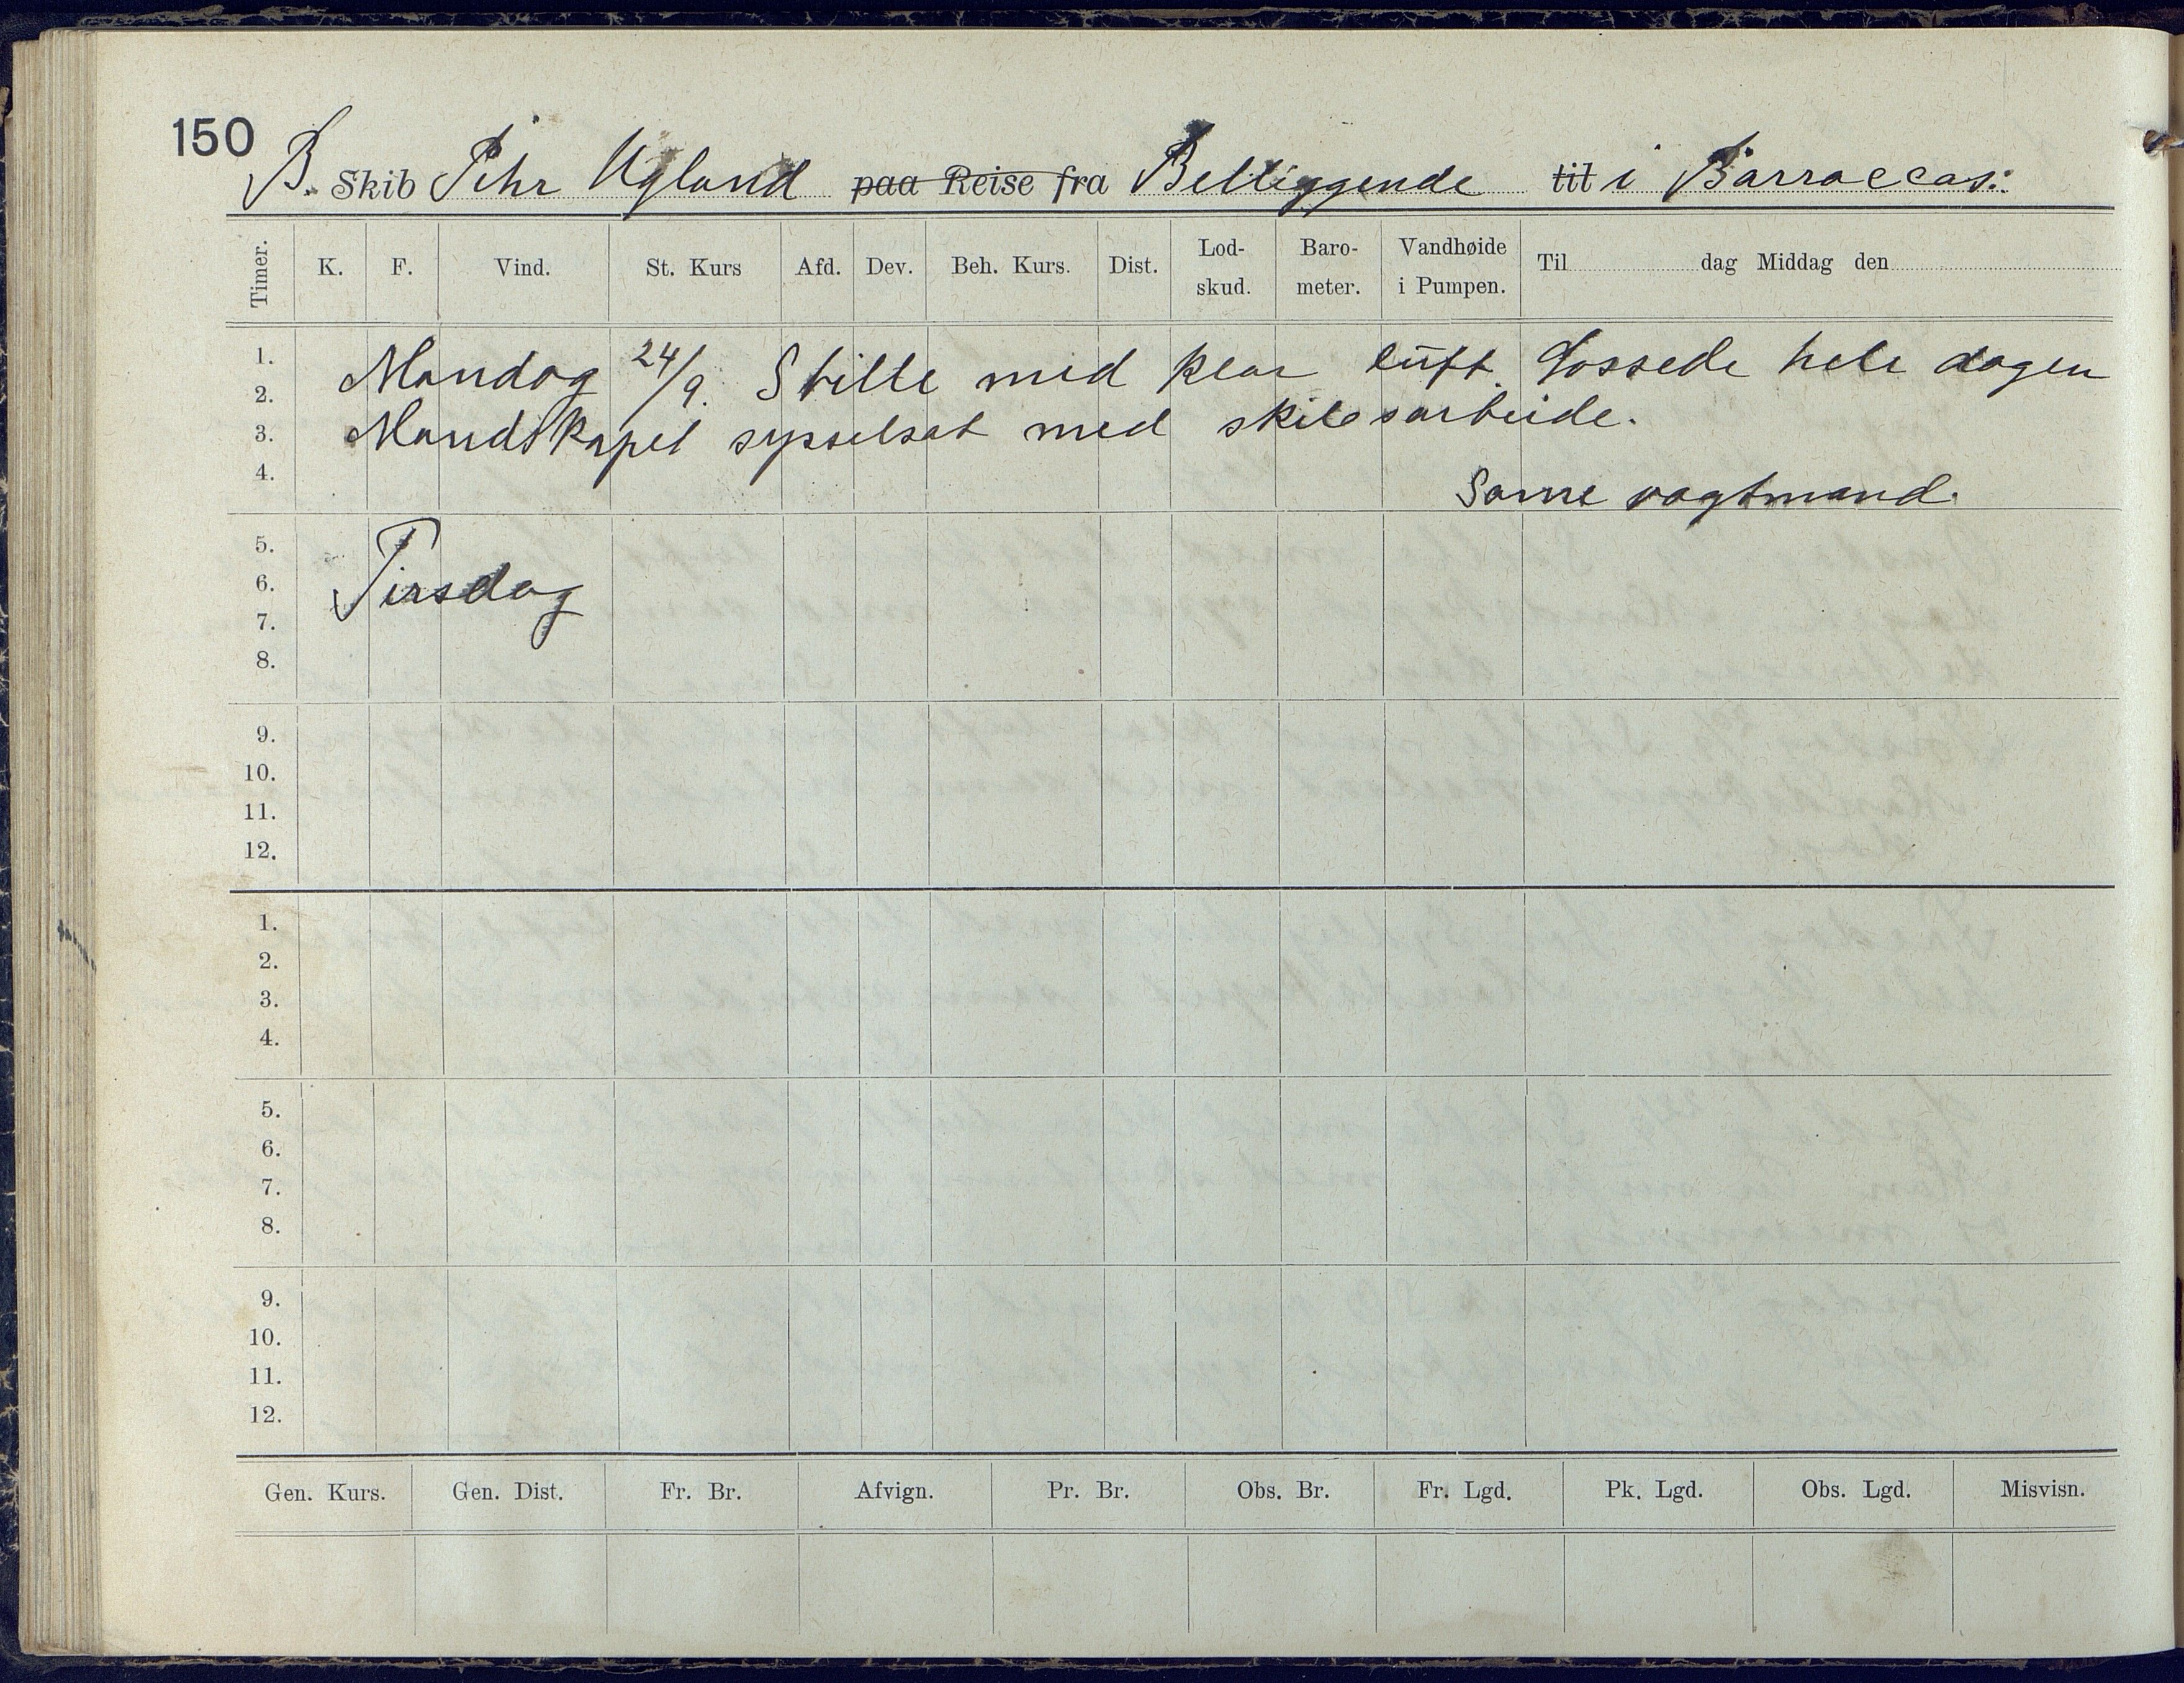 150
B. Skib Pehr Ugland paa Reise fra Belliggende til i Barraccas:
Timer. K. F. Vind. St. Kurs Afd. Dev. Beh. Kurs. Dist. Lod-skud. Baro-meter. Vandhøide i Pumpen. Til dag Middag den
1.
Mandag 24/9. Stille med klar luft. Lossede hele dagen
2.
3. Mandskapet sysselsat med skibsarbeide.
4. Same vagtmand.
5.
6. Tirsdag
7.
8.
9.
10.
11.
12.
1.
2.
3.
4.
5.
6.
7.
8.
9.
10.
11.
12.
Gen. Kurs. Gen. Dist. Fr. Br. Afvign. Pr. Br. Obs. Br. Fr. Lgd. Pk. Lgd. Obs. Lgd. Misvisn.